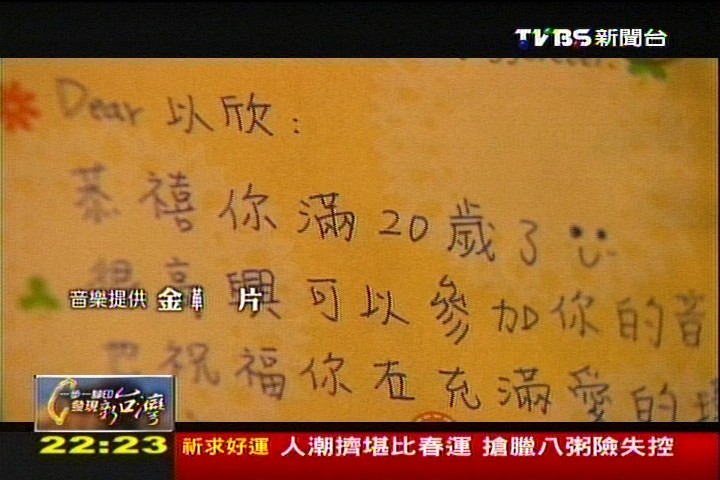 TVBS新聞台
Dear 以欣：
恭禧你滿20歲了
很高興可以參加你的音
也祝福你在充滿愛的
音樂提供 金 片
一步一腳印
發現新台灣
22:23 祈求好運 人潮擠堪比春運 搶臘八粥險失控